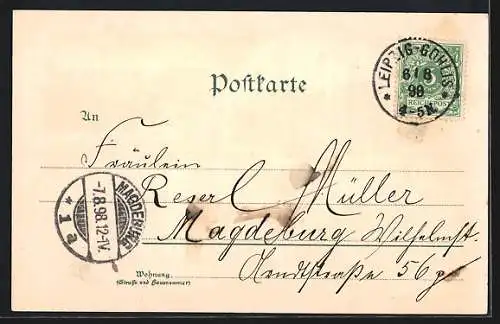 Postkarte
LEIPZIG-GOHLIS
6/8
98
4-5N.
5
REICHSPOST
An
Fräulein
Reserl Müller
Magdeburg Wilhelmst.
MAGDEBURG
-7.8.98.12-1V.
* 1 a
Arndtstraße 56 p
Wohnung.
(Straße und Hausnummer)